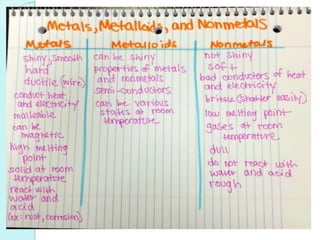 Metals, Metalloids, and Nonmetals
Metals
shiny, smooth
hard
ductile (wire)
conduct heat
and electricity
malleable
can be
magnetic
high melting
point
solid at room
temperature
react with
water and
acid
(ex: rust, corrosion)
Metalloids
can be shiny
properties of metals
and nonmetals
semi-conductors
can be various
states at room
temperature
Nonmetals
not shiny
soft
bad conductors of heat
and electricity
brittle (shatter easily)
low melting point
gases at room
temperature
dull
do not react with
water and acid
rough